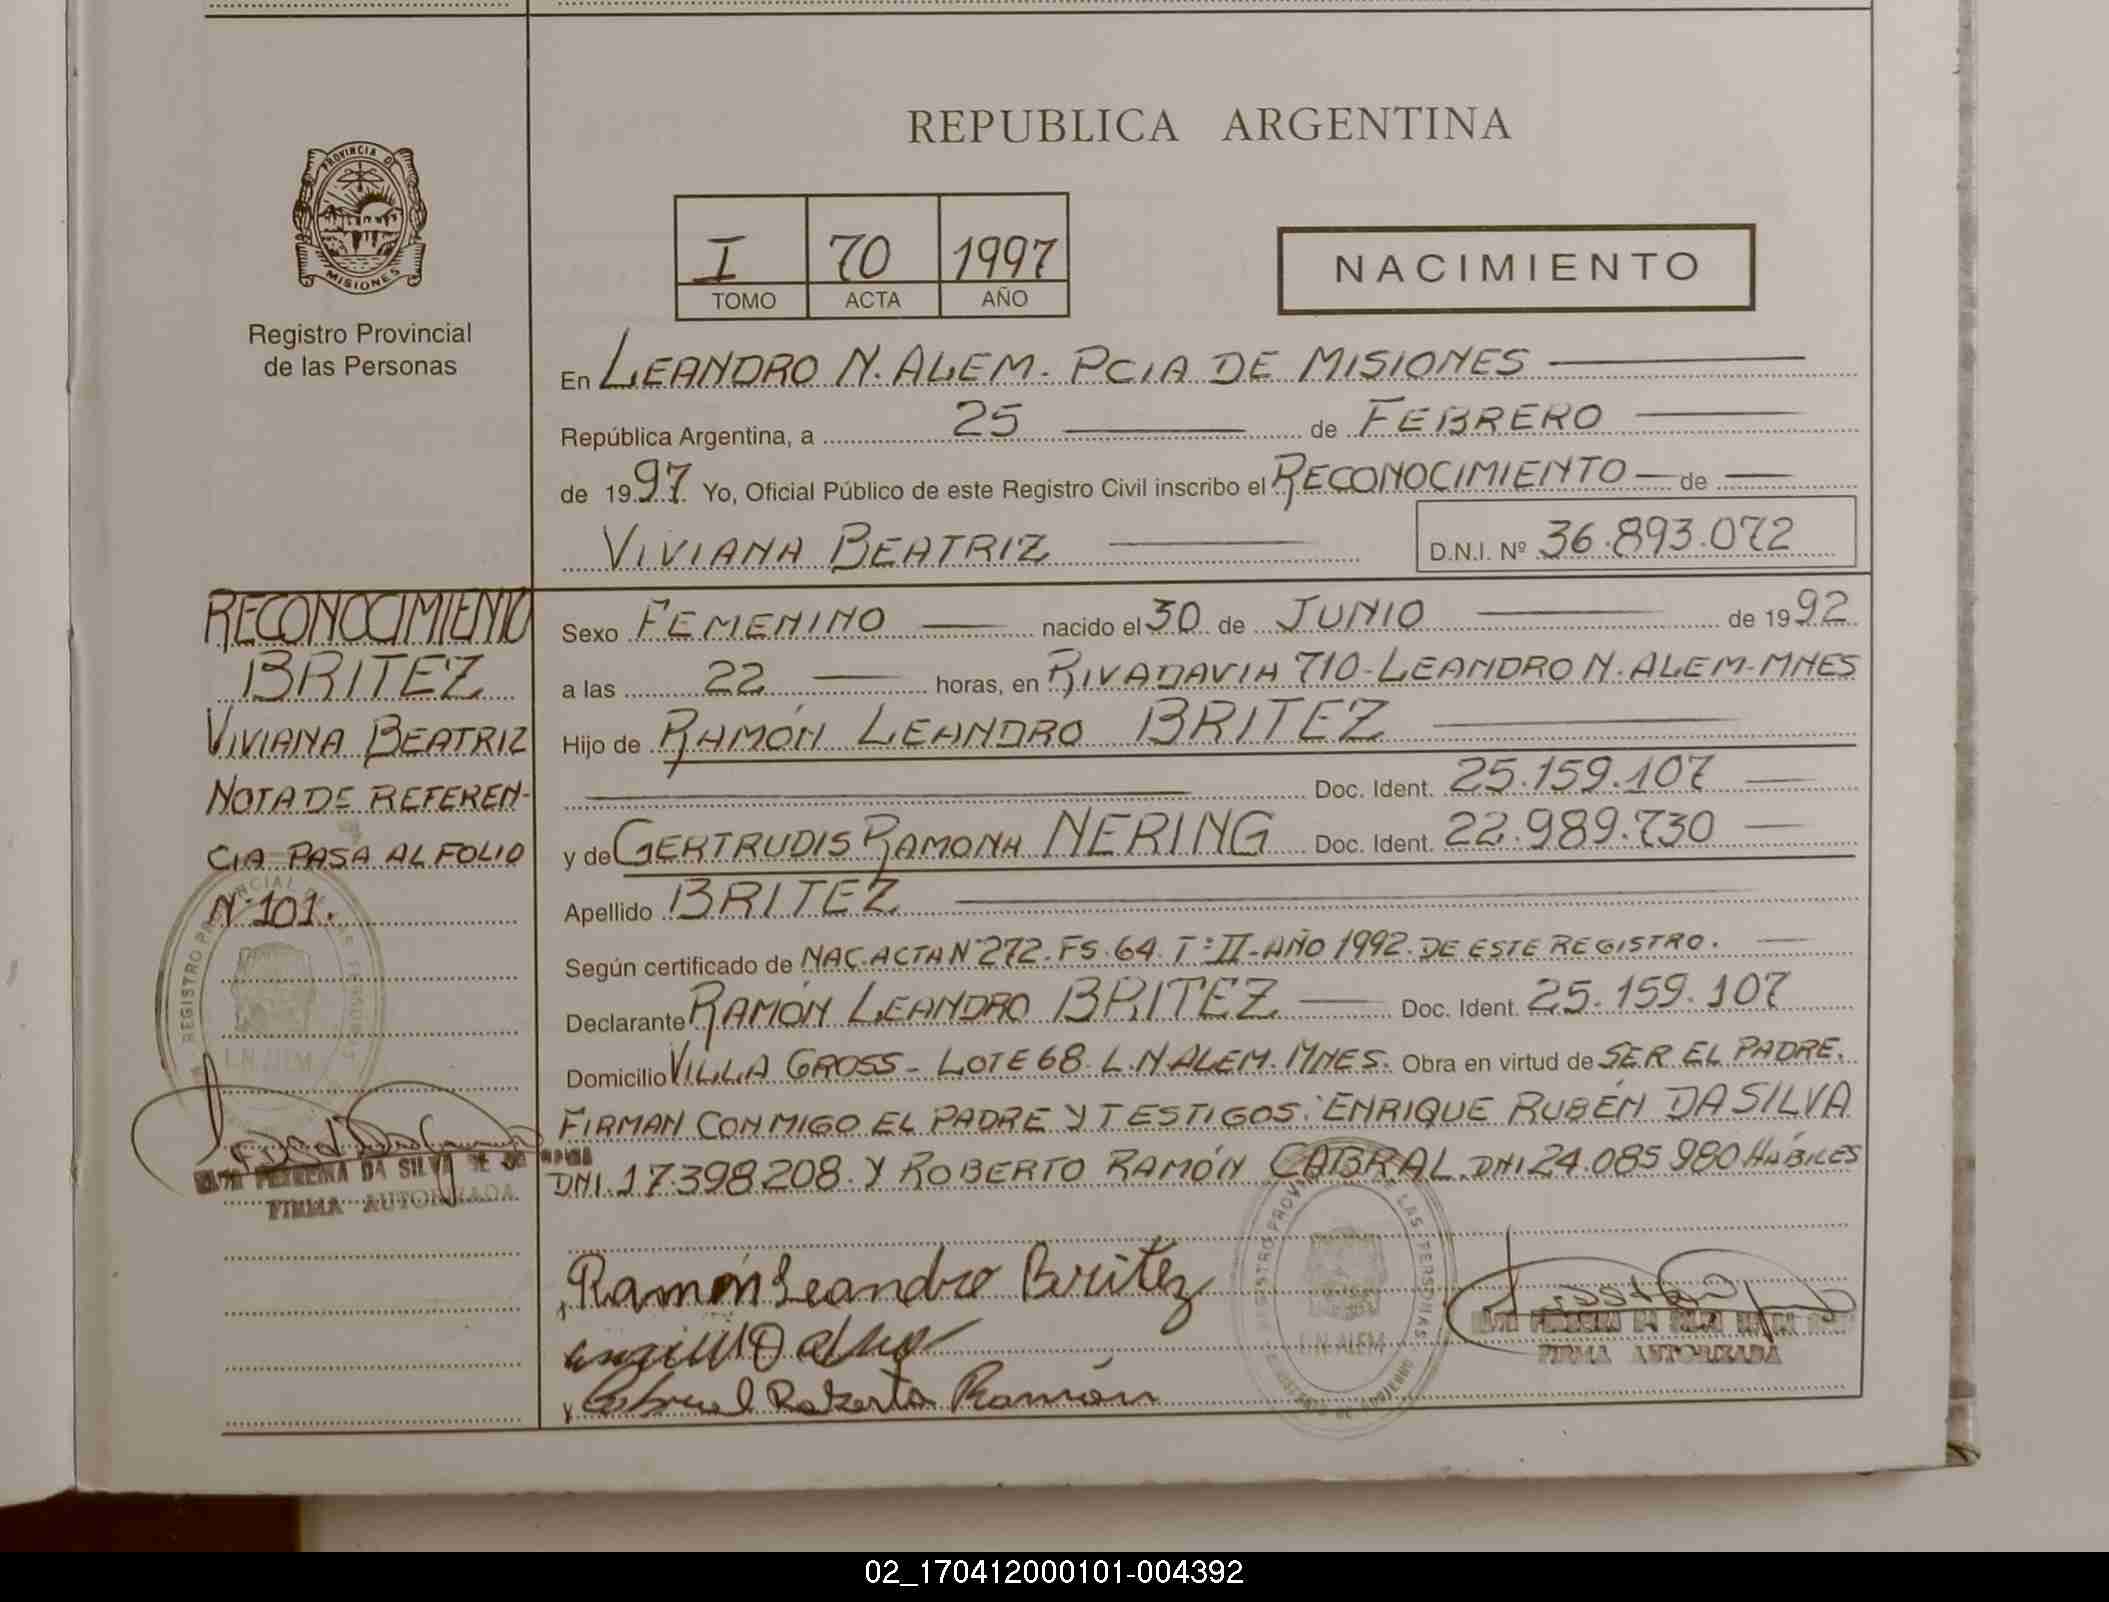 REPUBLICA ARGENTINA
PROVINCIA DE
MISIONES
Registro Provincial
de las Personas
I 70 1997
TOMO ACTA AÑO
NACIMIENTO
En LEANDRO N. ALEM. PCIA DE MISIONES
República Argentina, a 25 de FEBRERO
de 1997. Yo, Oficial Público de este Registro Civil inscribo el RECONOCIMIENTO de
VIVIANA BEATRIZ D.N.I. Nº 36.893.072
RECONOCIMIENTO
BRITEZ
VIVIANA BEATRIZ
NOTA DE REFEREN-
CIA PASA AL FOLIO
Nº 101.
FIRMA AUTORIZADA
Sexo FEMENINO nacido el 30 de JUNIO de 1992
a las 22 horas, en RIVADAVIA 710-LEANDRO N. ALEM-MNES
Hijo de RAMÓN LEANDRO BRITEZ
Doc. Ident. 25.159.107
y de GERTRUDIS RAMONA NERING Doc. Ident. 22.989.730
Apellido BRITEZ
Según certificado de NAC. ACTA Nº 272. FS. 64. T: II-AÑO 1992. DE ESTE REGISTRO.
Declarante RAMÓN LEANDRO BRITEZ Doc. Ident. 25.159.107
Domicilio VILLA GROSS - LOTE 68. L.N. ALEM. MNES. Obra en virtud de SER EL PADRE.
FIRMAN CONMIGO EL PADRE Y TESTIGOS: ENRIQUE RUBÉN DA SILVA
DNI. 17398208. Y ROBERTO RAMÓN CABRAL. DNI 24.085980 HÁBILES
Ramón Leandro Britez
Roberto Ramón
L.N. ALEM
FIRMA AUTORIZADA
02_170412000101-004392